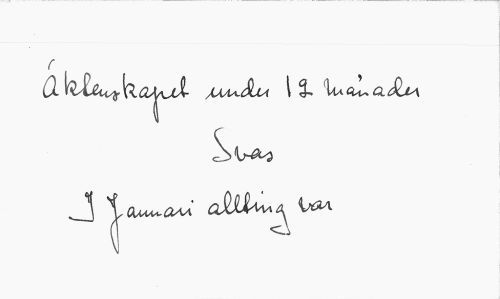 Äktenskapet under 12 månader
Svar
I Januari allting var